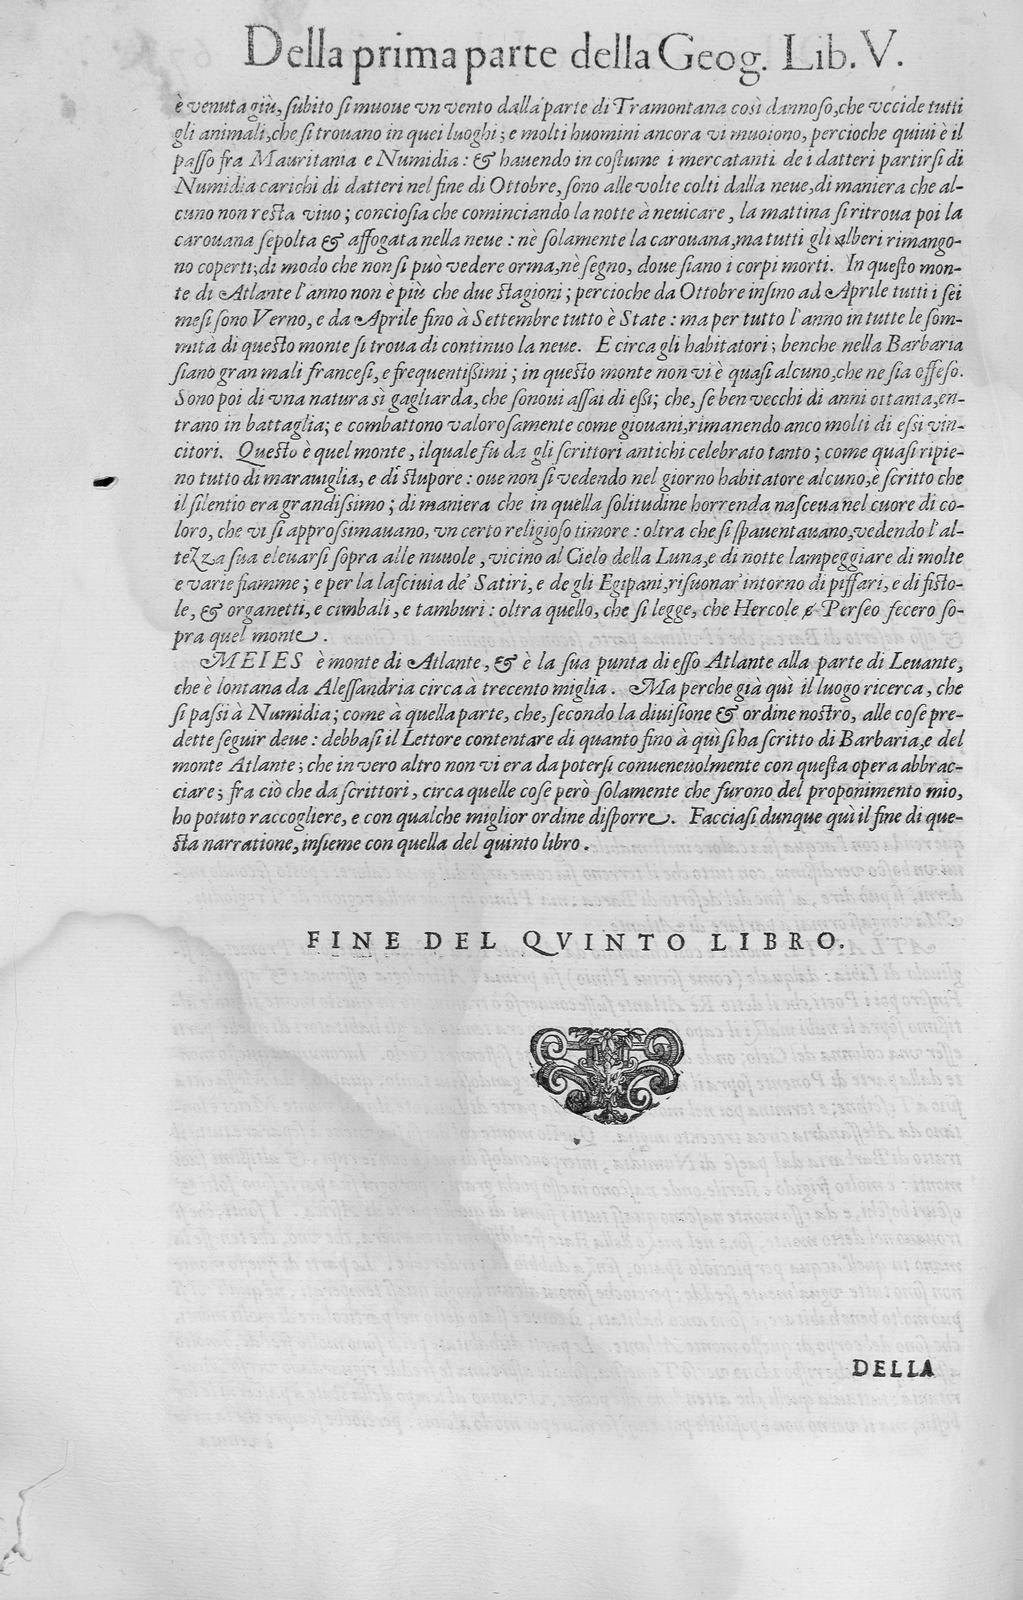 Della prima parte della Geog. Lib. V.
è venuta giù, subito si muoue vn vento dalla parte di Tramontana così dannoso, che vccide tutti
gli animali, che si trouano in quei luoghi; e molti huomini ancora vi muoiono, percioche quiui è il
passo fra Mauritania e Numidia: & hauendo in costume i mercatanti de i datteri partirsi di
Numidia carichi di datteri nel fine di Ottobre, sono alle volte colti dalla neue, di maniera che al-
cuno non resta viuo; conciosia che cominciando la notte à neuicare, la mattina si ritroua poi la
carouana sepolta & affogata nella neue: nè solamente la carouana, ma tutti gli alberi rimango-
no coperti; di modo che non si può vedere orma, nè segno, doue siano i corpi morti. In questo mon-
te di Atlante l'anno non è più che due stagioni; percioche da Ottobre insino ad Aprile tutti i sei
mesi sono Verno, e da Aprile fino à Settembre tutto è State: ma per tutto l'anno in tutte le som-
mità di questo monte si troua di continuo la neue. E circa gli habitatori; benche nella Barbaria
siano gran mali francesi, e frequentissimi; in questo monte non vi è quasi alcuno, che ne sia offeso.
Sono poi di vna natura sì gagliarda, che sonoui assai di essi; che, se ben vecchi di anni ottanta, en-
trano in battaglia; e combattono valorosamente come giouani, rimanendo anco molti di essi vin-
citori. Questo è quel monte, ilquale fu da gli scrittori antichi celebrato tanto; come quasi ripie-
no tutto di marauiglia, e di stupore: oue non si vedendo nel giorno habitatore alcuno, è scritto che
il silentio era grandissimo; di maniera che in quella solitudine horrenda nasceua nel cuore di co-
loro, che vi si approssimauano, vn certo religioso timore: oltra che si spauentauano, vedendo l'al-
tezza sua eleuarsi sopra alle nuuole, vicino al Cielo della Luna, e di notte lampeggiare di molte
e varie fiamme; e per la lasciuia de' Satiri, e de gli Egipani, risuonar' intorno di piffari, e di fisto-
le, & organetti, e cimbali, e tamburi: oltra quello, che si legge, che Hercole e Perseo fecero so-
pra quel monte.
MEIES è monte di Atlante, & è la sua punta di esso Atlante alla parte di Leuante,
che è lontana da Alessandria circa à trecento miglia. Ma perche già quì il luogo ricerca, che
si passi à Numidia; come à quella parte, che, secondo la diuisione & ordine nostro, alle cose pre-
dette seguir deue: debbasi il Lettore contentare di quanto fino à quì si ha scritto di Barbaria, e del
monte Atlante; che in vero altro non vi era da potersi conueneuolmente con questa opera abbrac-
ciare; fra ciò che da scrittori, circa quelle cose però solamente che furono del proponimento mio,
ho potuto raccogliere, e con qualche miglior ordine disporre. Facciasi dunque quì il fine di que-
sta narratione, insieme con quella del quinto libro.
FINE DEL QVINTO LIBRO.
DELLA